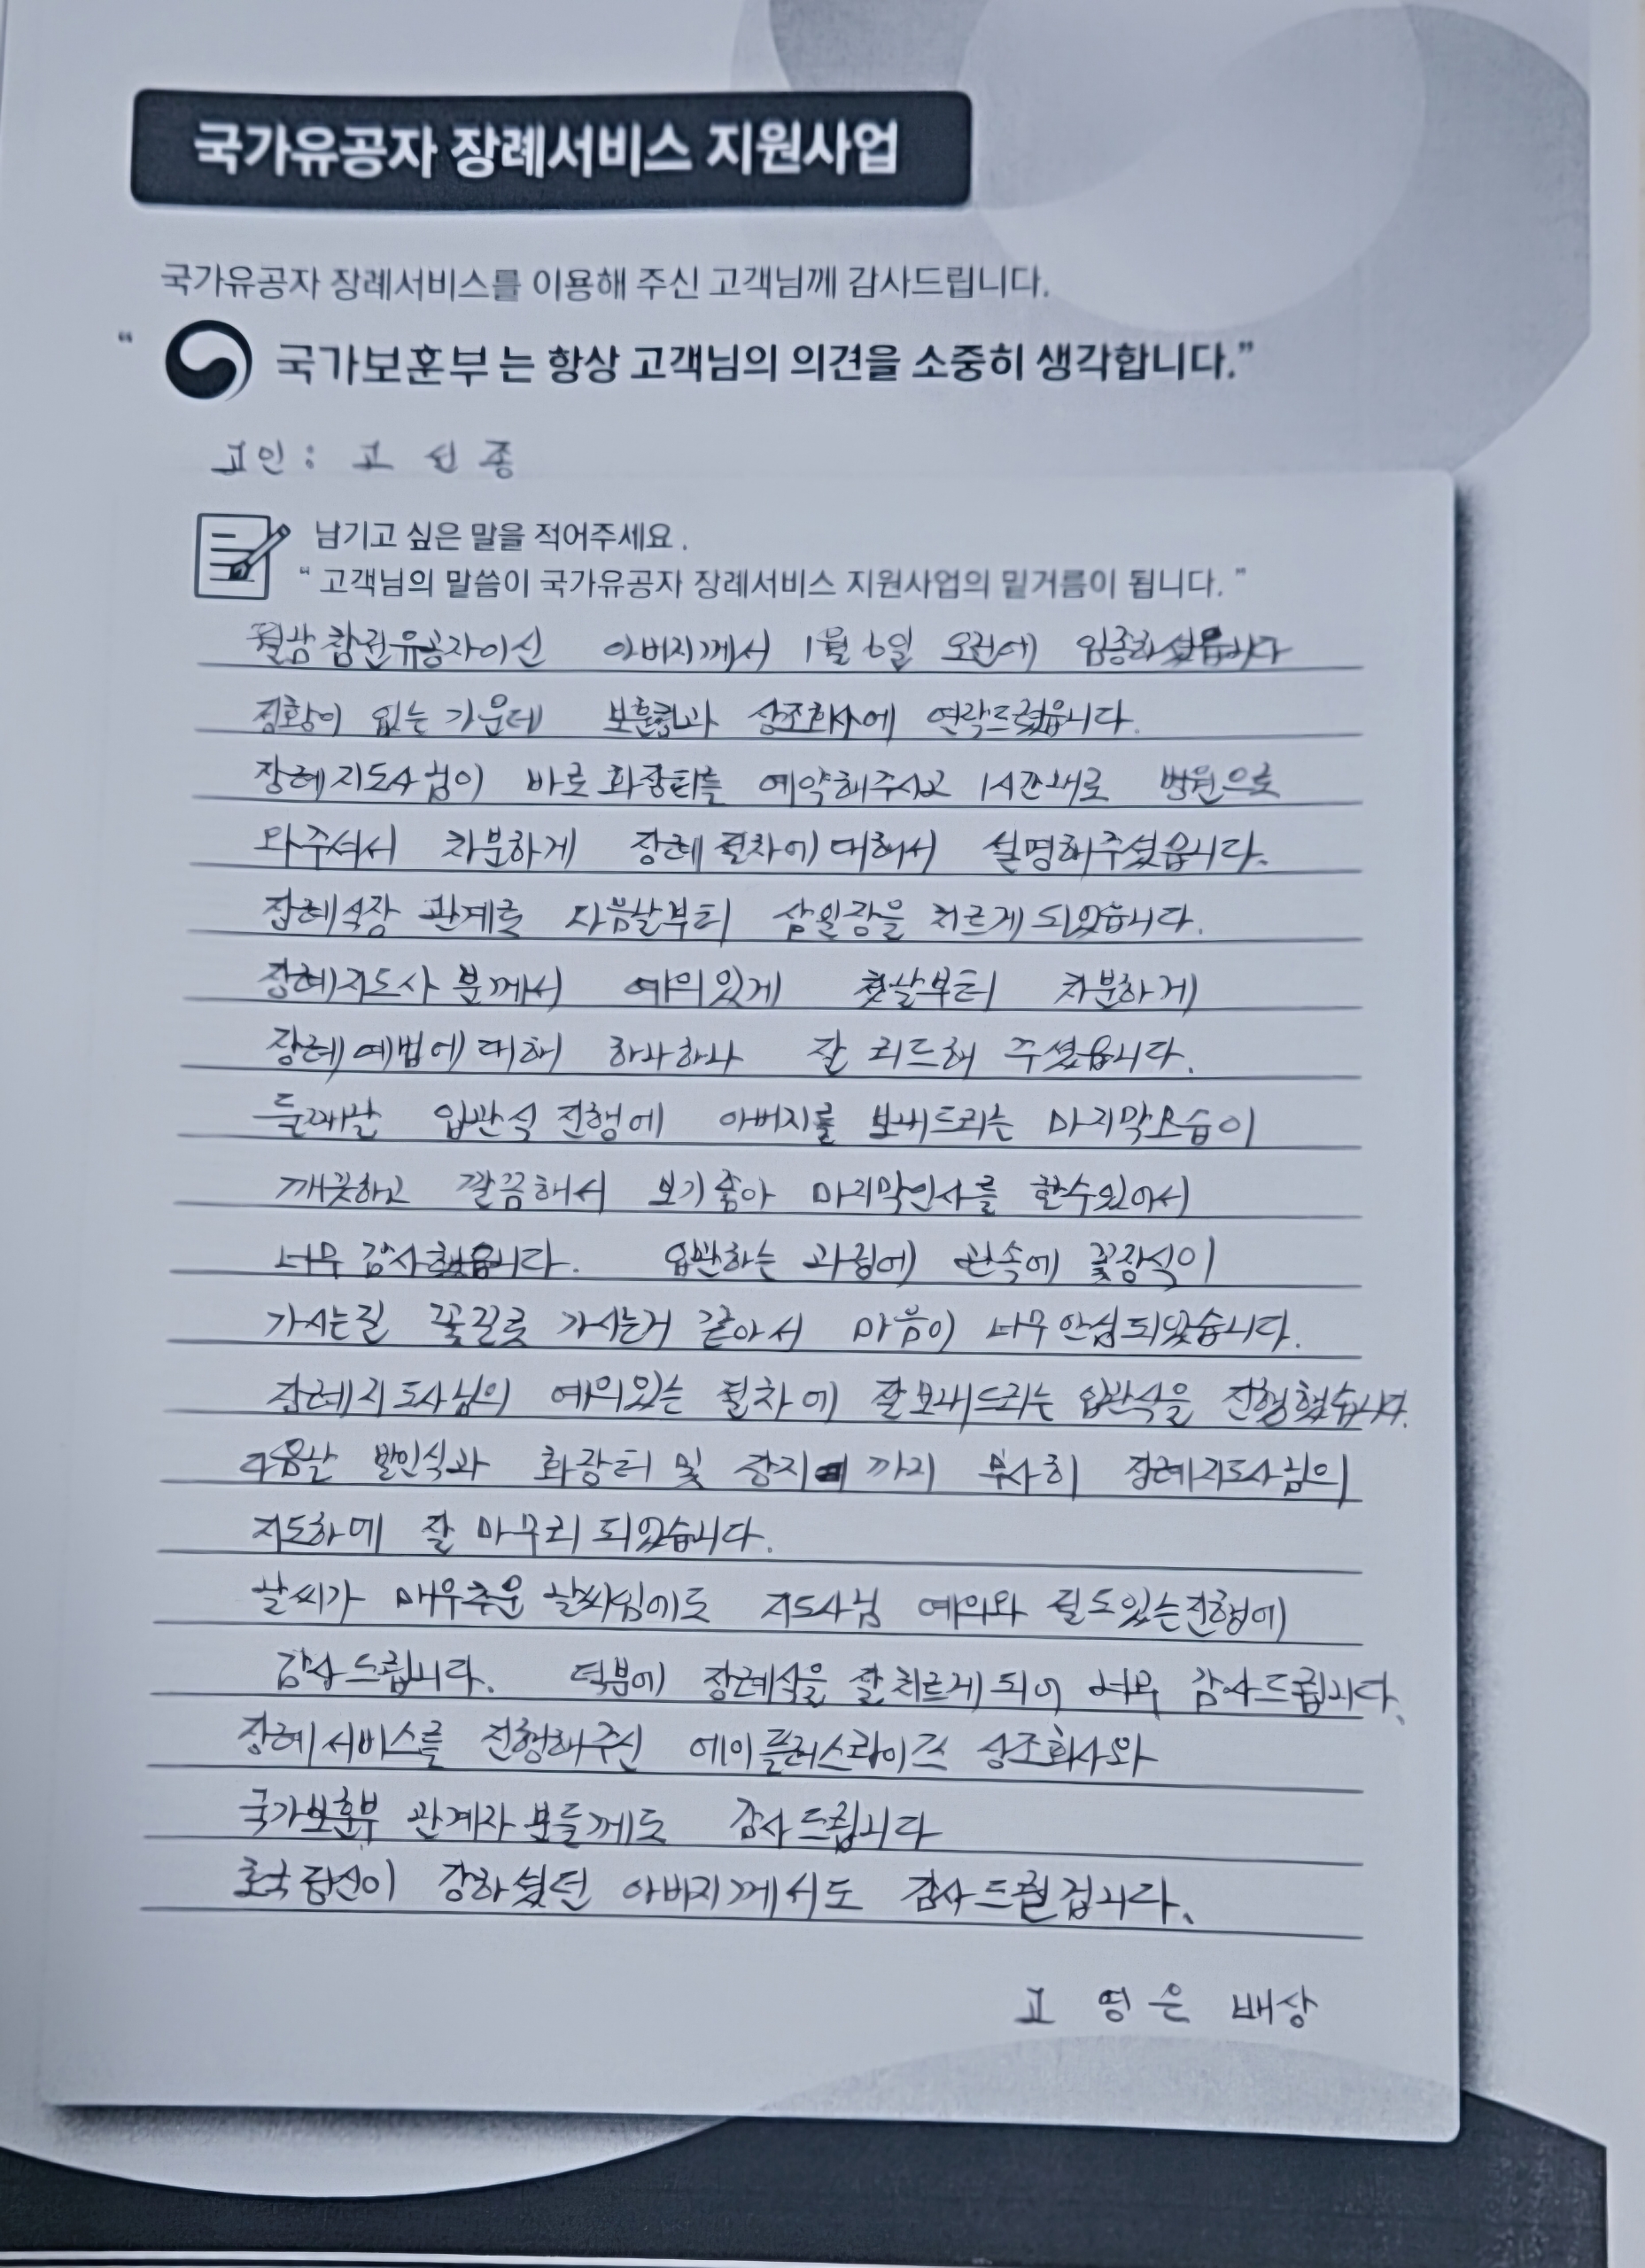 국가유공자 장례서비스 지원사업
국가유공자 장례서비스를 이용해 주신 고객님께 감사드립니다.
“ 국가보훈부는 항상 고객님의 의견을 소중히 생각합니다.”
고인: 고 선 종
남기고 싶은 말을 적어주세요.
“ 고객님의 말씀이 국가유공자 장례서비스 지원사업의 밑거름이 됩니다. ”
월남참전유공자이신 아버지께서 1월 6일 오전에 임종하셨읍니다
정황이 없는 가운데 상조회사에 연락드렸읍니다.
장례지도사님이 바로 화장터를 예약해주시고 1시간내로 병원으로
와주셔서 차분하게 장례절차에 대해서 설명해주셨읍니다.
장례식장 관계로 다음날부터 삼일장을 치르게 되었습니다.
장례지도사 분께서 예의있게 첫날부터 차분하게
장례예법에 대해 하나하나 잘 리드해 주셨읍니다.
둘째날 입관식 진행에 아버지를 보내드리는 마지막모습이
깨끗하고 깔끔해서 보기좋아 마지막인사를 할수있어서
너무 감사했읍니다. 입관하는 과정에 관속에 꽃장식이
가시는길 꽃길로 가시는거 같아서 마음이 너무 안심되었습니다.
장례지도사님의 예의있는 절차에 잘보내드리는 입관식을 진행했습니다.
다음날 발인식과 화장터 및 장지 까지 무사히 장례지도사님의
지도하에 잘 마무리 되었습니다.
날씨가 매우추운 날씨임에도 지도사님 예의와 절도있는진행에
감사드립니다. 덕분에 장례식을 잘 치르게 되어 너무 감사드립니다.
장례서비스를 진행해주신 에이플러스라이프 상조회사와
국가보훈부 관계자 분들께도 감사드립니다
호국정신이 강하셨던 아버지께서도 감사드릴겁니다.
고 영 은 배상